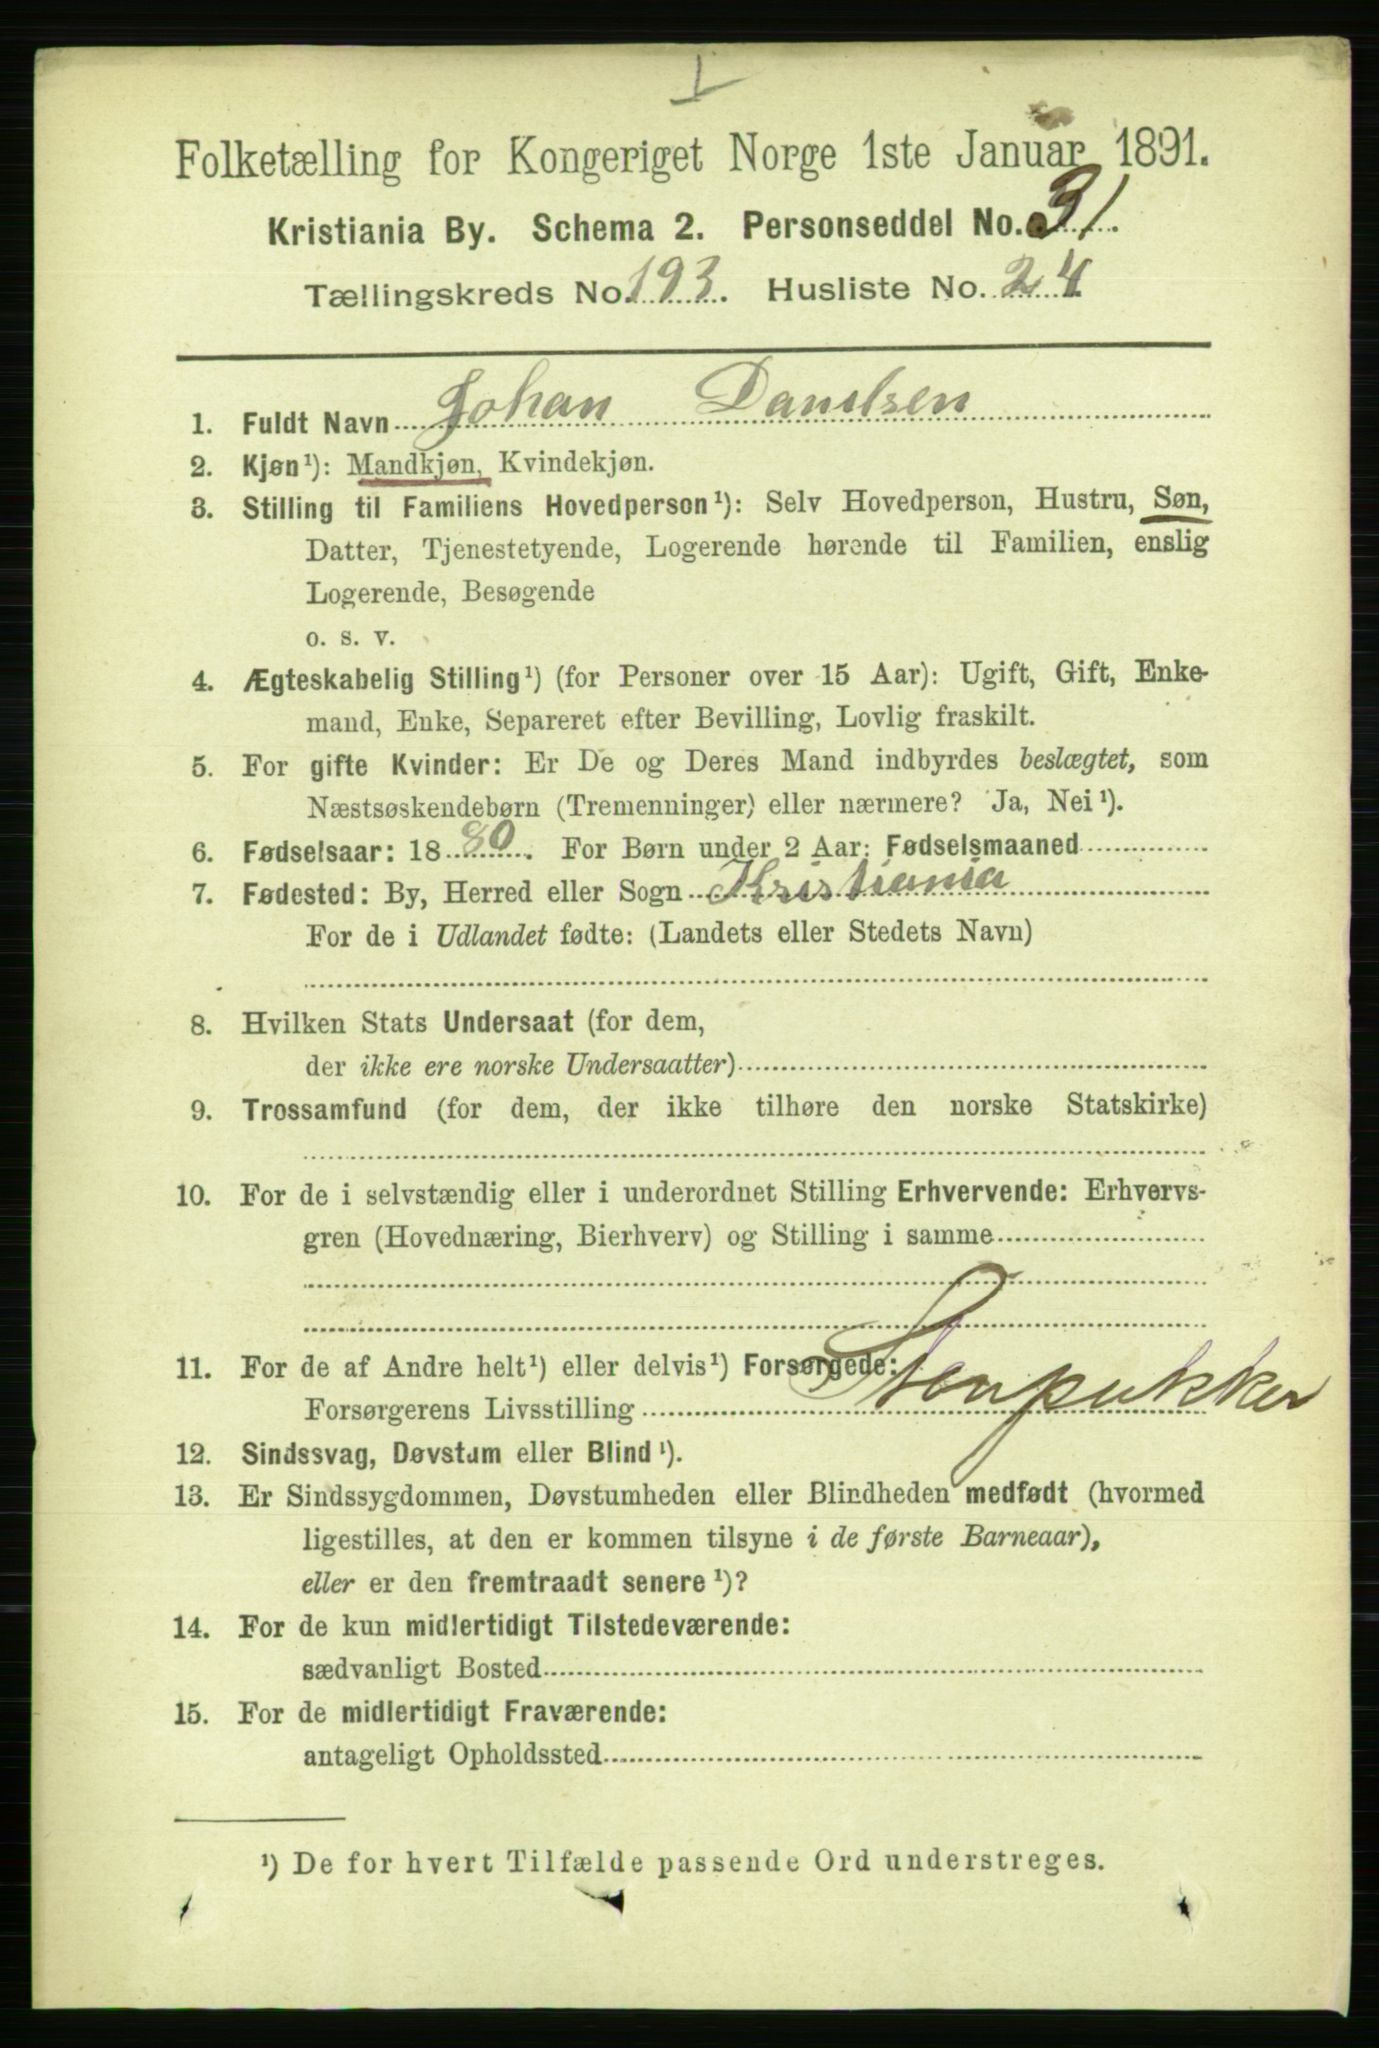 I
Folketælling for Kongeriget Norge 1ste Januar 1891.
Kristiania By. Schema 2. Personseddel No. 31.
Tællingskreds No. 193. Husliste No. 24
1. Fuldt Navn Johan Danielsen
2. Kjøn¹): Mandkjøn, Kvindekjøn.
3. Stilling til Familiens Hovedperson¹): Selv Hovedperson, Hustru, Søn,
Datter, Tjenestetyende, Logerende hørende til Familien, enslig
Logerende, Besøgende
o. s. v.
4. Ægteskabelig Stilling¹) (for Personer over 15 Aar): Ugift, Gift, Enke-
mand, Enke, Separeret efter Bevilling, Lovlig fraskilt.
5. For gifte Kvinder: Er De og Deres Mand indbyrdes beslægtet, som
Næstsøskendebørn (Tremenninger) eller nærmere? Ja, Nei¹).
6. Fødselsaar: 1880. For Børn under 2 Aar: Fødselsmaaned
7. Fødested: By, Herred eller Sogn Kristiania
For de i Udlandet fødte: (Landets eller Stedets Navn)
8. Hvilken Stats Undersaat (for dem,
der ikke ere norske Undersaatter)
9. Trossamfund (for dem, der ikke tilhøre den norske Statskirke)
10. For de i selvstændig eller i underordnet Stilling Erhvervende: Erhvervs-
gren (Hovednæring, Bierhverv) og Stilling i samme
11. For de af Andre helt¹) eller delvis¹) Forsørgede:
Forsørgerens Livsstilling Stenpukker
12. Sindssvag, Døvstum eller Blind¹).
13. Er Sindssygdommen, Døvstumheden eller Blindheden medfødt (hvormed
ligestilles, at den er kommen tilsyne i de første Barneaar),
eller er den fremtraadt senere¹)?
14. For de kun midlertidigt Tilstedeværende:
sædvanligt Bosted
15. For de midlertidigt Fraværende:
antageligt Opholdssted
¹) De for hvert Tilfælde passende Ord understreges.